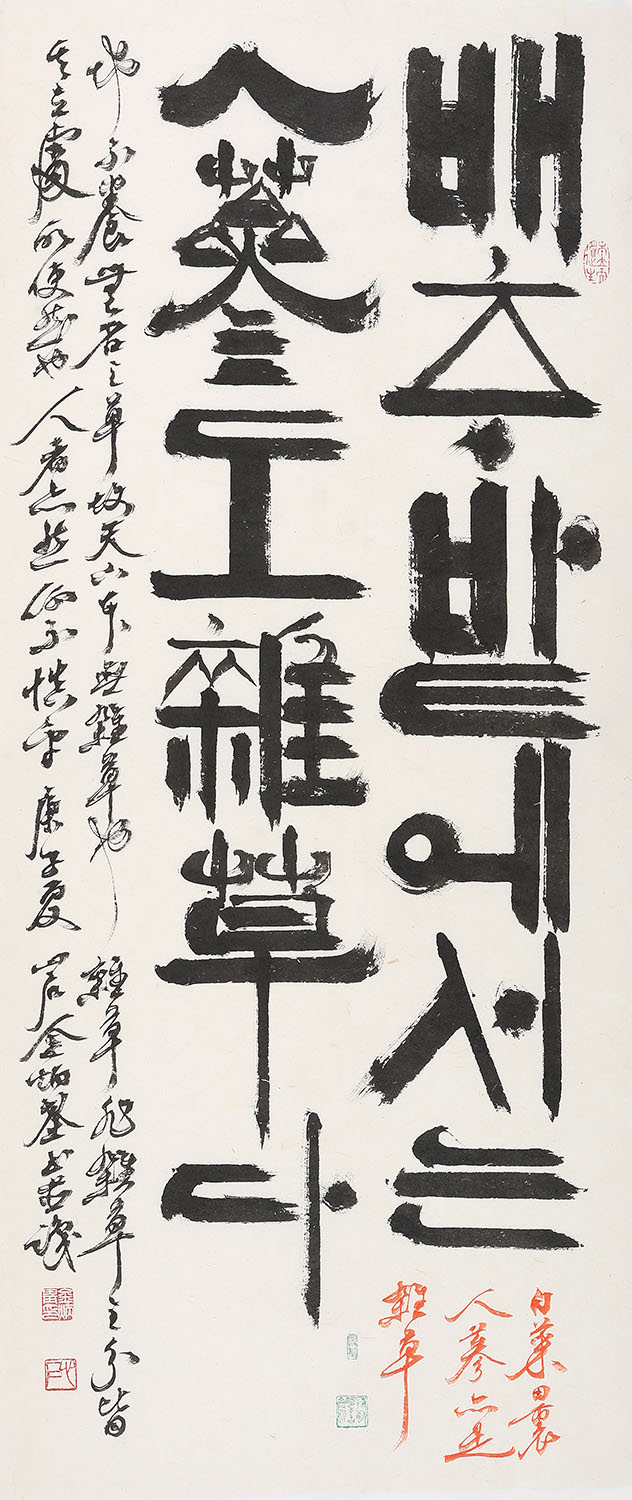 배추밭에서는
人蔘도雜草다
白菜田裏
人蔘亦是
雜草
地不養無名之草故天下本無雜草也 雜草非雜草之分皆
其立處所使然也人者亦然何不慎乎庚子夏 心石金炳基書並識